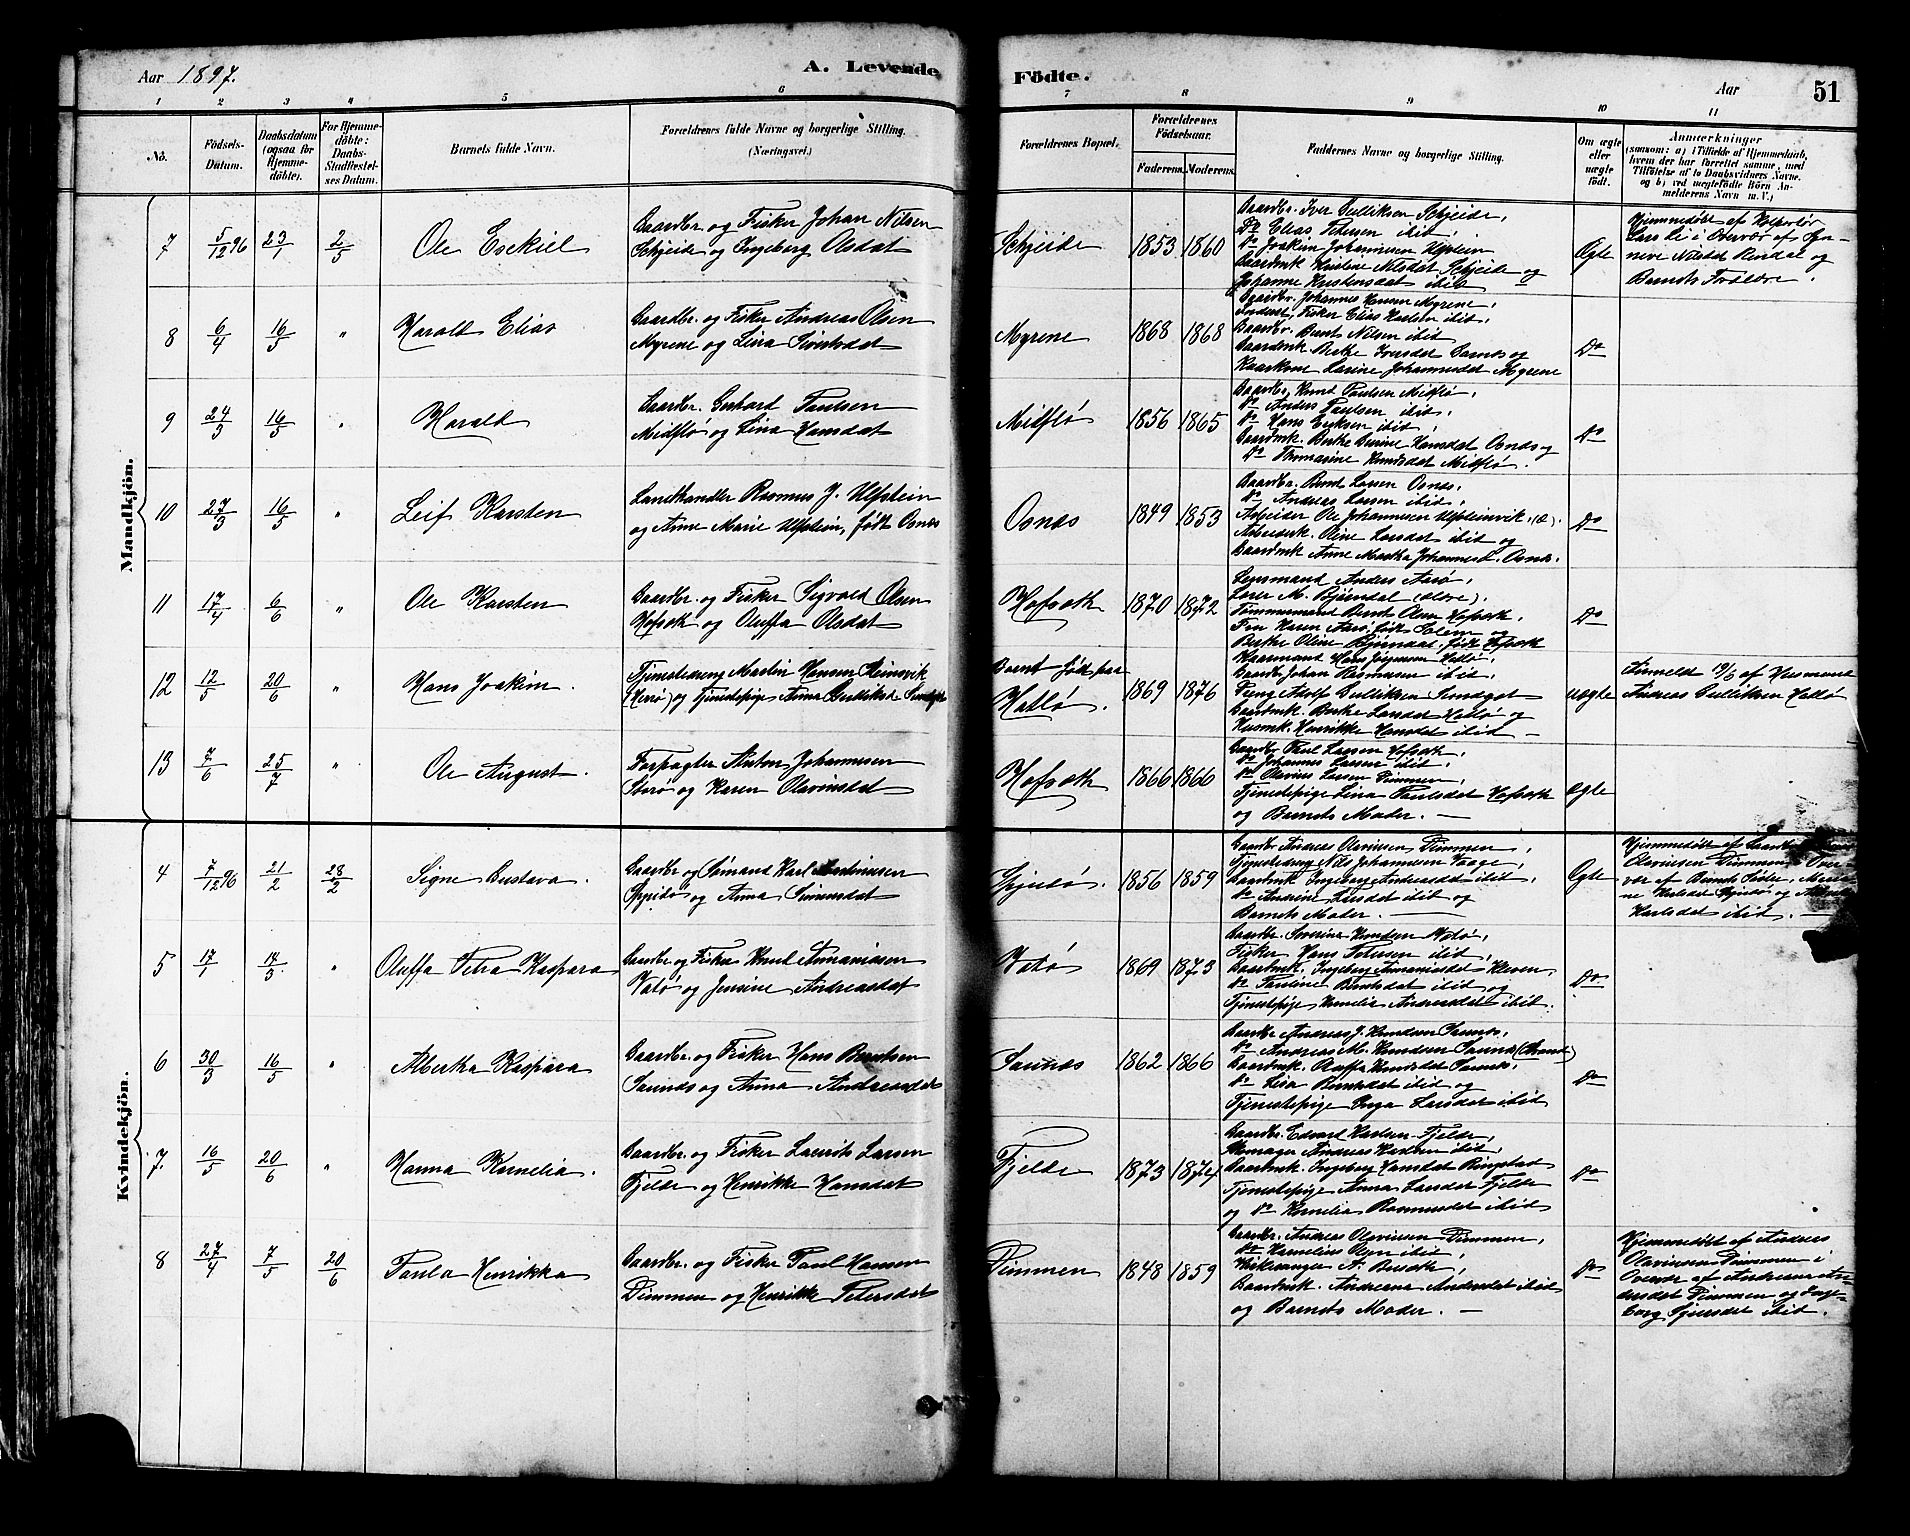 Aar 1897.
A. Levende
Födte.
Aar
51
1 2 3 4 5 6 7 8 9 10 11
No.
Födsels-
Datum.
Daabsdatum
(ogsaa for
Hjemme-
döbte).
For Hjemme-
döbte:
Daabs-
Stadfæstel-
ses Datum.
Barnets fulde Navn.
Forældrenes fulde Navne og borgerlige Stilling.
(Næringsvei.)
Forældrenes Bopæl.
Forældrenes
Födselsaar.
Faderens. Moderens.
Faddernes Navne og borgerlige Stilling.
Om ægte
eller
uægte
födt.
Anmærkninger
(saasom: a) i Tilfælde af Hjemmedaab,
hvem der har forrettet samme, med
Tilföielse af to Daabsvidners Navne.
og b) ved uægtefödte Börn An-
melderens Navn m. V.)
Mandkjön.
7 5/12 96 23/1 2/5 Ole Esekiel
Gaardbr. og Fisker Johan Nilsen
Schjeide og Ingeborg Olsdat
Schjeide 1853 1860
Gaardbr. Iver Gulliksen Schjeide,
Do Elias Petersen ibid,
Do Joakim Johannesen Ulfstein
Gaardmk. Kristine Nilsdat Schjeide og
Johanne Kristensdat ibid
Ægte
Hjemmedöbt af
Lars i Overvær af
Nilsdat og
Barnets Forældre.
8 6/4 16/5 " Harald Elias
Gaardbr. og Fisker Andreas Olsen
Myrene og Lina Sivertsdat
Myrene 1868 1868
Gaardbr. Johannes Hansen Myrene,
Fisker Elias Karlsen ibid,
Gaardbr. Bernt Nilsen ibid
Gaardmk. Berthe Iversdat Saunes og
Kaarkone Larine Johannesdat Myrene
Do
9 24/3 16/5 " Harald
Gaardbr. Gerhard Paulsen
Midflø og Lina Hansdat
Midflø 1856 1865
Gaardbr. Knud Paulsen Midflø,
Do Anders Paulsen ibid,
Do Hans Eriksen ibid,
Gaardmk. Berthe Serine Hansdat Osnes og
Do Thomasine Knudsdat Midflø.
Do
10 27/3 16/5 " Leif Karsten
Landhandler Rasmus J. Ulfstein
og Anne Marie Ulfstein, født Osnes
Osnes 1849 1853
Gaardbr. Bernt Larsen Osnes,
Do Andreas Larsen ibid,
Arbeider Ole Johannesen Ulfsteinvik,
Arbeidmk. Oline Larsdat ibid og
Gaardmk. Anne Martha Johannesd. Osnes.
Do
11 17/4 6/6 " Ole Karsten
Gaardbr. og Fisker Sigvald Olsen
Hofseth og Oluffa Olsdat
Hofseth 1870 1872
Lensmand Anders Aarø,
Lærer M. Bjørndal
Tømmermand Bernt Olsen Hofseth,
Fru Karen Aarø, født Solem og
Berthe Oline Bjørndal, født Hofseth
Do
12 12/5 20/6 " Hans Joakim.
Tjenestedreng Martin Hansen
(Herø) og Tjenestepige Anna Gulliksd.
Barnet født paa
Hatlø. 1869 1876
Kaarmand Hans Jørgensen Hatlø,
Gaardbr. Johan Rasmussen ibid,
Dreng Adolf Gulliksen
Gaardmk. Berthe Larsdat Hatlø og
Husmk. Henrikke Hansdat ibid —
uægte
Anmeldt 19/6 af Husmand
Andreas Gulliksen Hatlø
13 7/6 25/7 " Ole August.
Forpagter Anton Johannesen
Storø og Karen Olavinsdat
Hofseth 1866 1866
Gaardbr. Paul Larsen Hofseth,
Do Johannes Larsen ibid,
Do Olavius Larsen Dimmen,
Tjenestepige Lina Paulsdat Hofseth
og Barnets Moder. —
Ægte
Kvindekjön.
4 7/12 96 21/2 28/2 Signe Gustava.
Gaardbr og Sømand Karl Martinusen
Gjerdø og Anna Simensdat
Gjerdø. 1856 1859
Gaardbr. Andreas Olavinsen Dimmen,
Tjenestedreng Nils Johannesen Vaage,
Gaardmk. Ingeborg Andreasdat ibid,
Do Andrine Larsdat ibid og
Barnets Moder. —
Ægte
Hjemmedöbt af Gaardbr.
Olavinsen Dimmen i Over-
vær af Barnets Fader,
Karlsdat Gjerdø og
Karlsdat ibid. —
5 17/1 14/3 " Oluffa Petra Kaspara
Gaardbr og Fisker Knud Ananiassen
Vatø og Jensine Andreasdat
Vatø 1869 1873
Gaardbr. Severin Knudsen Vatø,
Fisker Hans Petersen ibid,
Gaardmk. Ingeborg Ananiasdat Kleven
Do Pauline Berntsdat ibid og
Tjenestepige Kornelia Andreasdat ibid.
Do
6 30/3 16/5 " Albertha Kaspara
Gaardbr. og Fisker Hans Berntsen
Saunes og Anna Andreasdat
Saunes 1862 1866
Gaardbr Andreas J. Knudsen Saunes,
Do Andreas M. Knudsen Saunes (Strand)
Gaardmk. Oluffa Knudsdat Saunes,
Do Lisa Berntsdat ibid og
Tjenestepige Inga Larsdat ibid
Do
7. 16/5 20/6 " Hanna Kornelia.
Gaardbr. og Fisker Laurits Larsen
Fjelde og Henrikke Hansdat
Fjelde 1873 1874
Gaardbr. Edvard Karlsen Fjelde,
Andreas Karlsen ibid,
Gaardmk. Ingeborg Hansdat Ringstad
Tjenestepige Anna Larsdat Fjelde
og Do Kornelia Rasmusdat ibid
Do
8 27/4 7/5 20/6 Paula Henrikka
Gaardbr. og Fisker Paul Hansen
Dimmen og Henrikke Petersdat
Dimmen 1848 1859
Gaardbr. Andreas Olavinsen Dimmen,
Do Kornelius Olsen ibid,
Kirkesanger A.
Gaardmk. Andreana Andersdat ibid
og Barnets Moder. —
Do
Hjemmedöbt af Andreas
Olavinsen Dimmen i
Overvær af Andreana An-
dersdat Dimmen og Inge-
borg Sjursdat ibid.